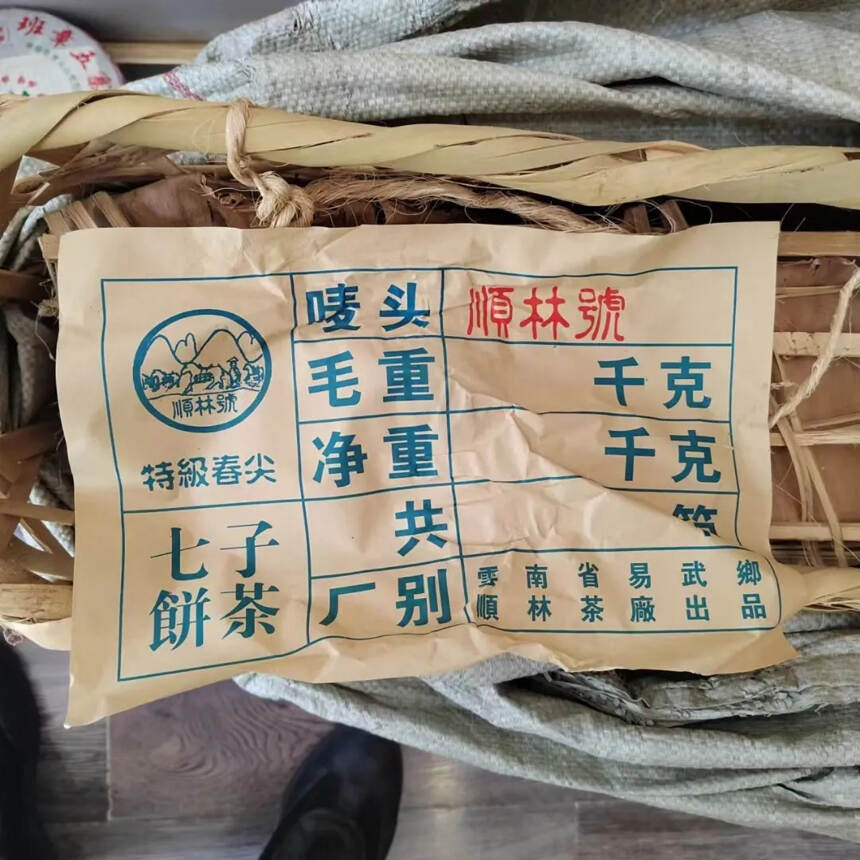 班章五
唛头
順林號
順林號
特級春尖
毛重
千克
净重
千克
共
七子
餅茶
厂别
雲南省易武鄉
順林茶廠出品